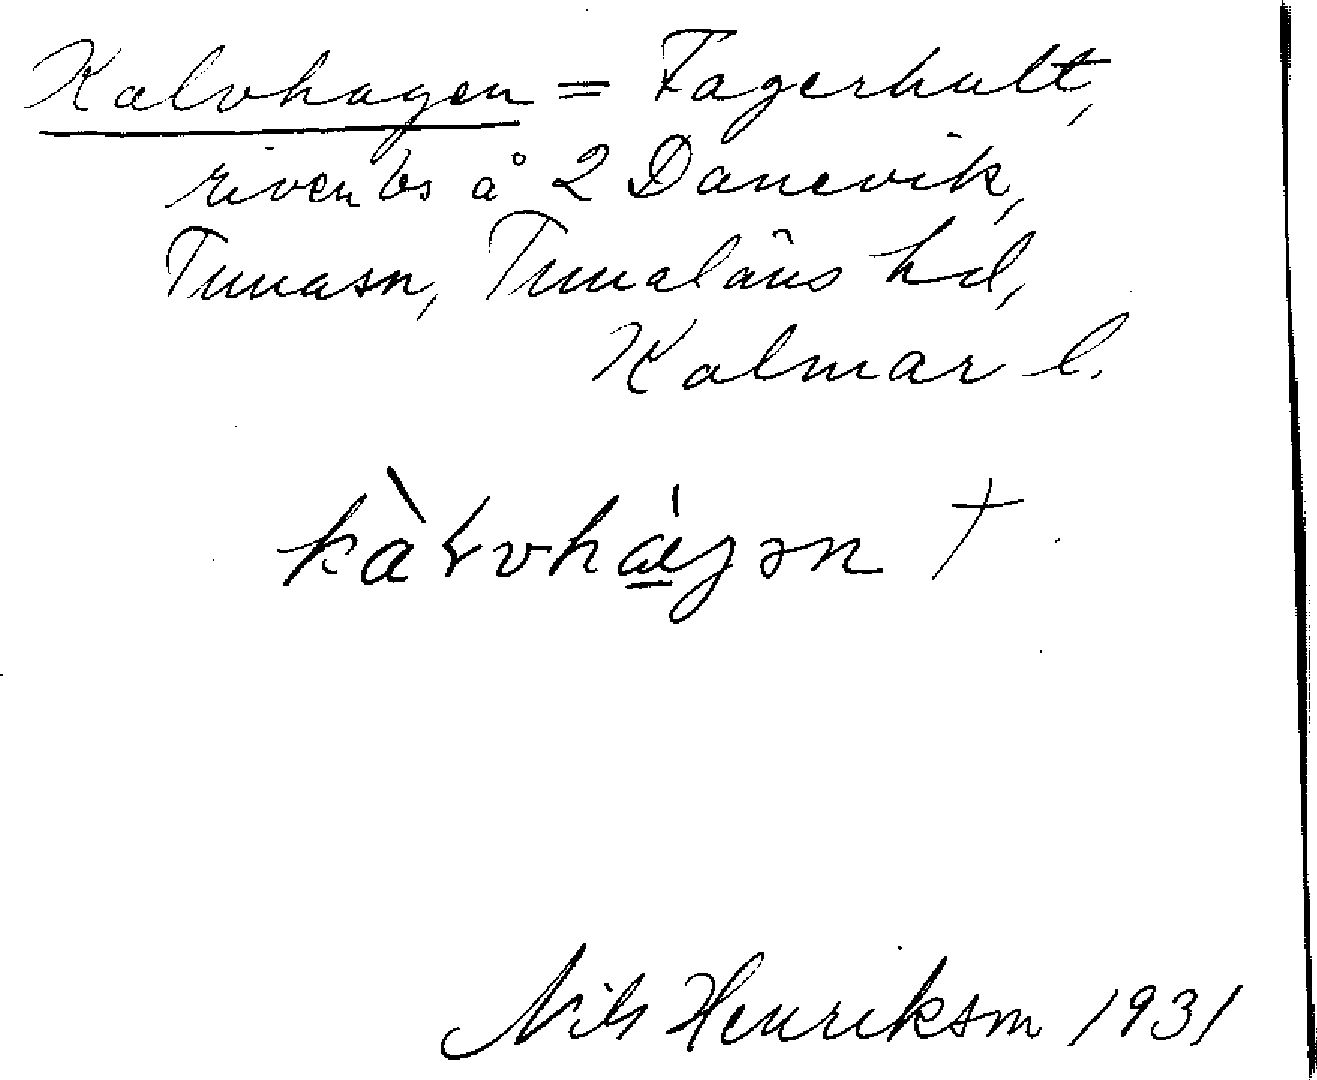 Kalvhagen = Fagerhult,
riven bs å 2 Danevik,
Tuna sn, Tunaläns hd,
Kalmar l.
kàɫvhág̣ən †
Nils Henrikson 1931